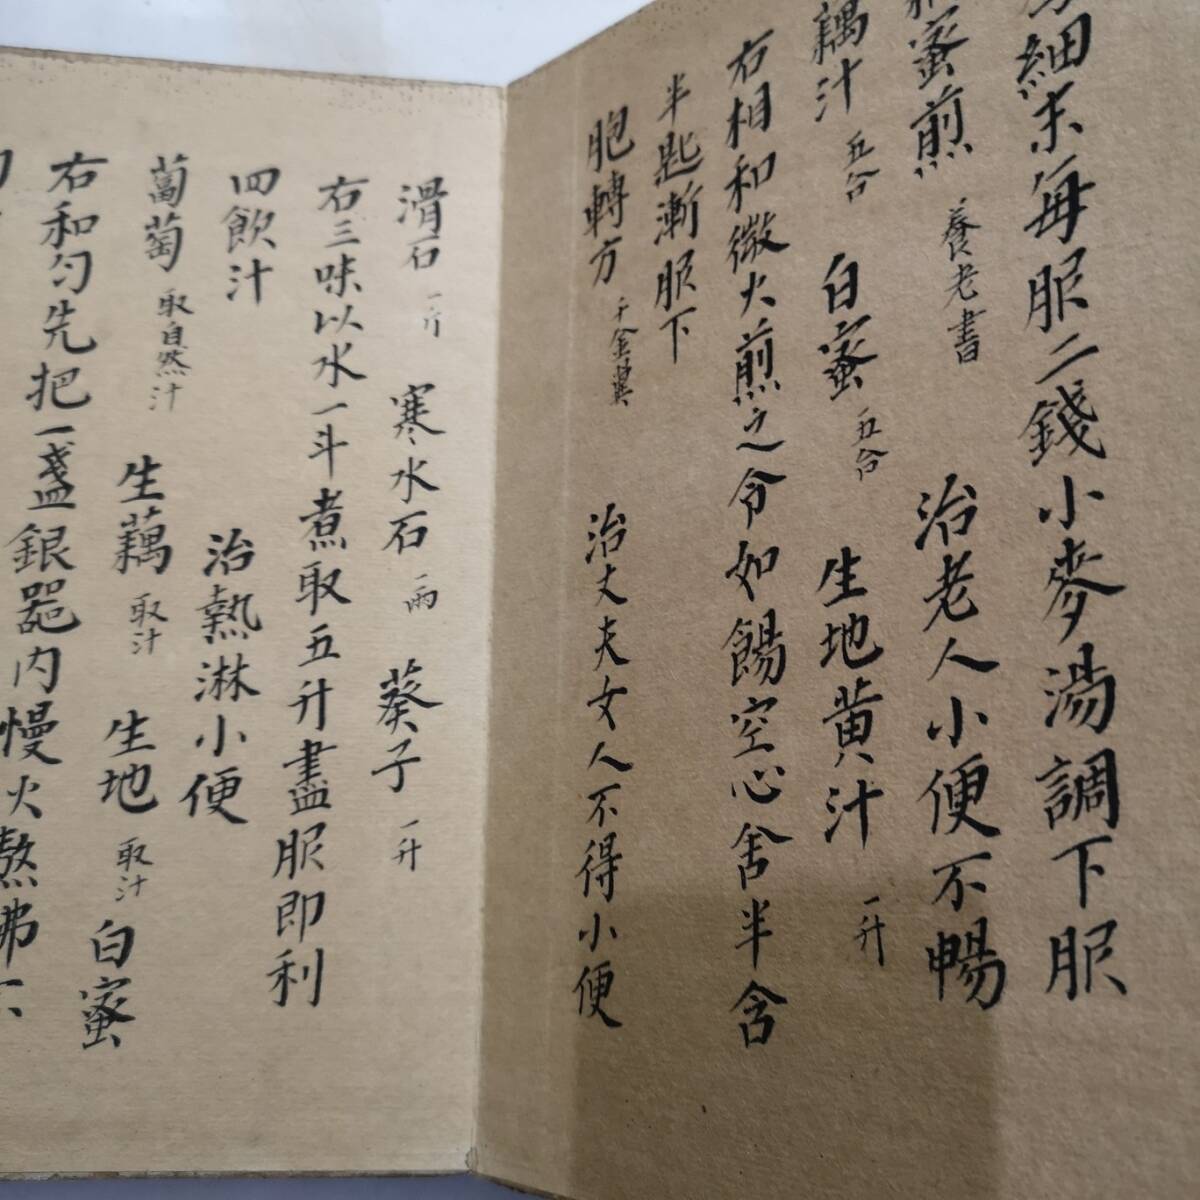 細末每服二錢小麥湯調下服
蜜煎 養老書 治老人小便不暢
藕汁 五合 白蜜 五合 生地黃汁 一升
右相和微火煎之令如餳空心含半含
半匙漸服下
胞轉方 千金翼 治丈夫女人不得小便
滑石 一斤 寒水石 一兩 葵子 一升
右三味以水一斗煮取五升盡服即利
四飲汁 治熱淋小便
蔔萄 取自然汁 生藕 取汁 生地 取汁 白蜜
右和勻先把一盞銀器內慢火熬沸